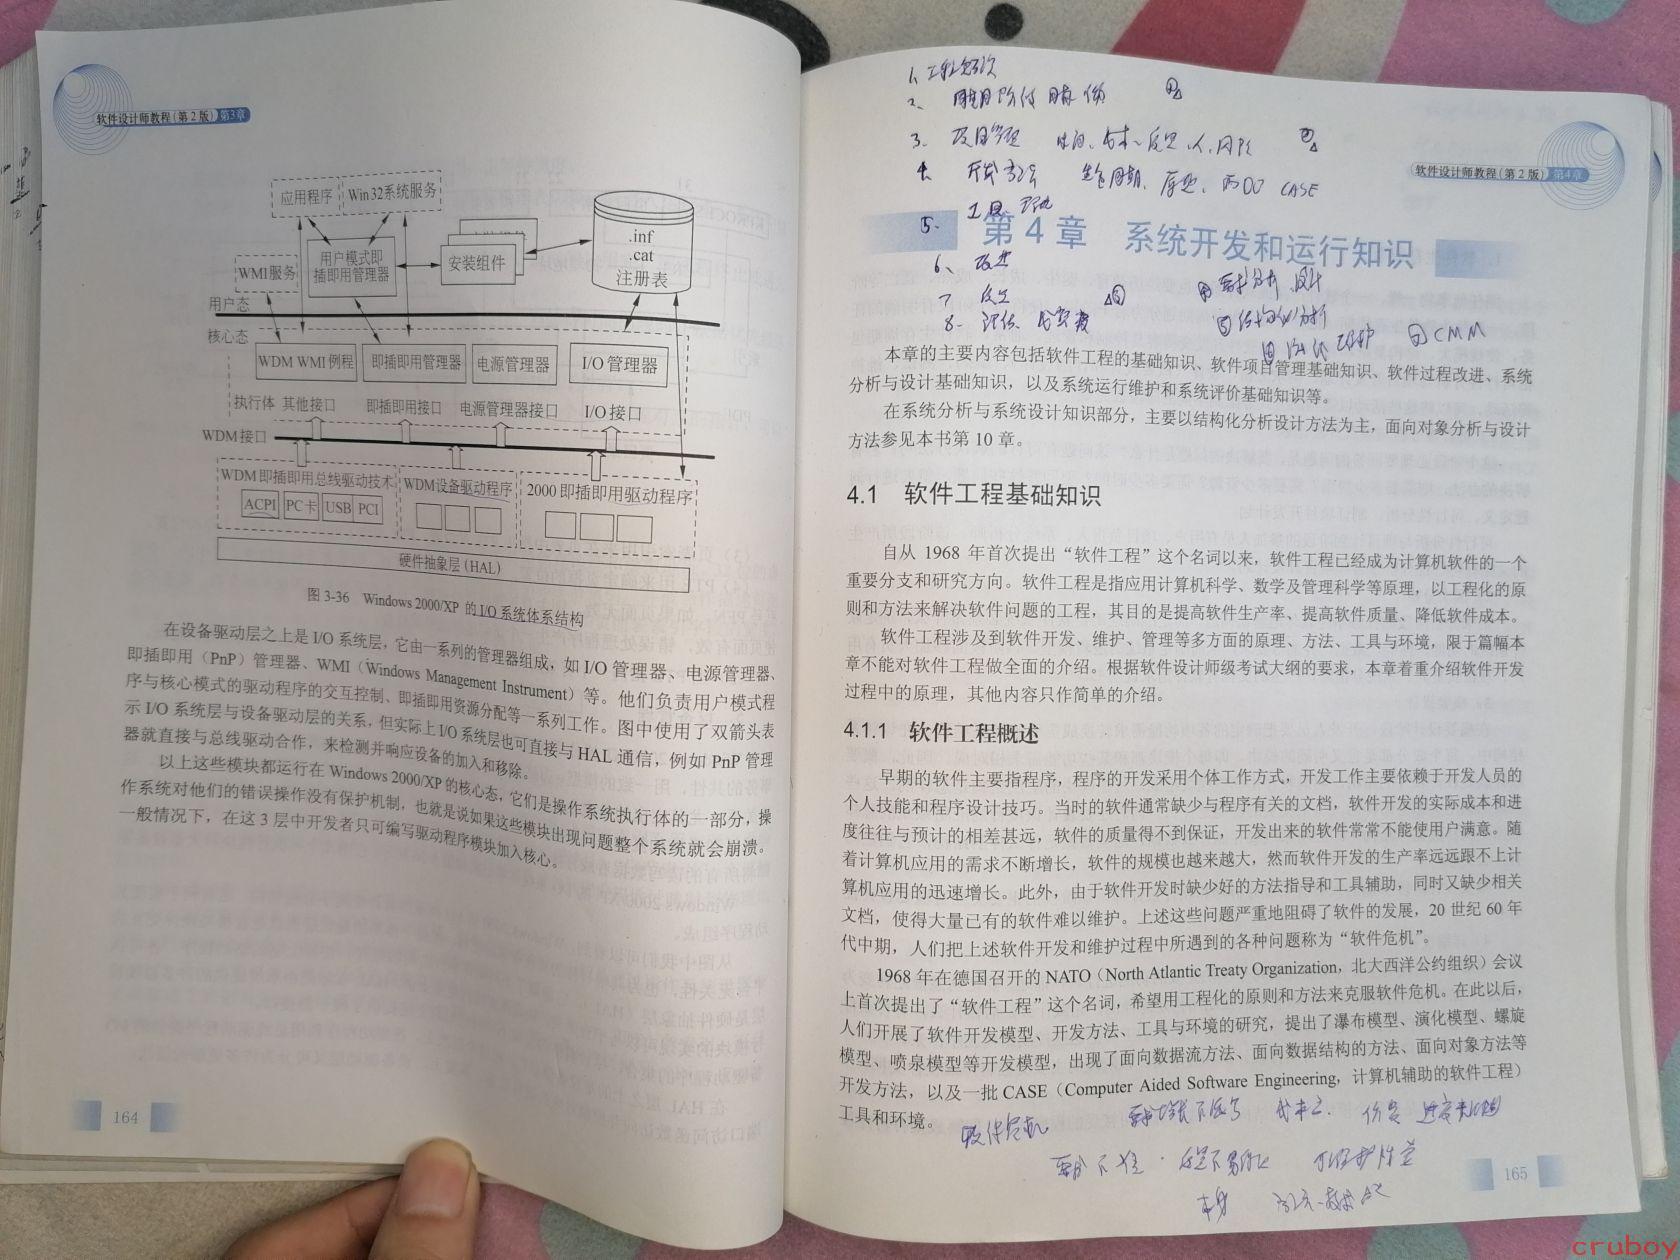 软件设计师教程（第2版）第3章
应用程序 Win 32系统服务
.inf
.cat
注册表
用户模式即
插即用管理器
安装组件
WMI服务
用户态
核心态
WDM WMI 例程 即插即用管理器 电源管理器 I/O 管理器
执行体 其他接口 即插即用接口 电源管理器接口 I/O 接口
WDM 接口
WDM 即插即用总线驱动技术 WDM设备驱动程序 2000 即插即用驱动程序
ACPI PC卡 USB PCI
硬件抽象层(HAL)
图 3-36 Windows 2000/XP 的 I/O 系统体系结构
在设备驱动层之上是 I/O 系统层，它由一系列的管理器组成，如 I/O 管理器、电源管理器、
即插即用（PnP）管理器、WMI（Windows Management Instrument）等。他们负责用户模式程
序与核心模式的驱动程序的交互控制、即插即用资源分配等一系列工作。图中使用了双箭头表
示 I/O 系统层与设备驱动层的关系，但实际上 I/O 系统层也可直接与 HAL 通信，例如 PnP 管理
器就直接与总线驱动合作，来检测并响应设备的加入和移除。
以上这些模块都运行在 Windows 2000/XP 的核心态，它们是操作系统执行体的一部分，操
作系统对他们的错误操作没有保护机制，也就是说如果这些模块出现问题整个系统就会崩溃。
一般情况下，在这 3 层中开发者只可编写驱动程序模块加入核心。
164
1、工程
2、
3、项目管理
4、开发方法 生命周期、原型、面OO CASE
软件设计师教程（第2版）第4章
5、工具
第 4 章 系统开发和运行知识
6、改进
7
8、评估
需求分析、设计
结构化分析
维护 CMM
本章的主要内容包括软件工程的基础知识、软件项目管理基础知识、软件过程改进、系统
分析与设计基础知识，以及系统运行维护和系统评价基础知识等。
在系统分析与系统设计知识部分，主要以结构化分析设计方法为主，面向对象分析与设计
方法参见本书第 10 章。
4.1 软件工程基础知识
自从 1968 年首次提出“软件工程”这个名词以来，软件工程已经成为计算机软件的一个
重要分支和研究方向。软件工程是指应用计算机科学、数学及管理科学等原理，以工程化的原
则和方法来解决软件问题的工程，其目的是提高软件生产率、提高软件质量、降低软件成本。
软件工程涉及到软件开发、维护、管理等多方面的原理、方法、工具与环境，限于篇幅本
章不能对软件工程做全面的介绍。根据软件设计师级考试大纲的要求，本章着重介绍软件开发
过程中的原理，其他内容只作简单的介绍。
4.1.1 软件工程概述
早期的软件主要指程序，程序的开发采用个体工作方式，开发工作主要依赖于开发人员的
个人技能和程序设计技巧。当时的软件通常缺少与程序有关的文档，软件开发的实际成本和进
度往往与预计的相差甚远，软件的质量得不到保证，开发出来的软件常常不能使用户满意。随
着计算机应用的需求不断增长，软件的规模也越来越大，然而软件开发的生产率远远跟不上计
算机应用的迅速增长。此外，由于软件开发时缺少好的方法指导和工具辅助，同时又缺少相关
文档，使得大量已有的软件难以维护。上述这些问题严重地阻碍了软件的发展，20 世纪 60 年
代中期，人们把上述软件开发和维护过程中所遇到的各种问题称为“软件危机”。
1968 年在德国召开的 NATO（North Atlantic Treaty Organization，北大西洋公约组织）会议
上首次提出了“软件工程”这个名词，希望用工程化的原则和方法来克服软件危机。在此以后，
人们开展了软件开发模型、开发方法、工具与环境的研究，提出了瀑布模型、演化模型、螺旋
模型、喷泉模型等开发模型，出现了面向数据流方法、面向数据结构的方法、面向对象方法等
开发方法，以及一批 CASE（Computer Aided Software Engineering，计算机辅助的软件工程）
工具和环境。
软件危机
可维护性差
165
cruboy